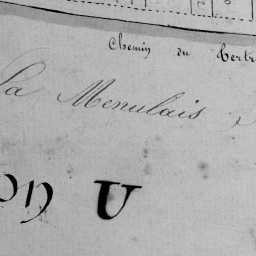 Chemin du Tertr
La Menulais
on U